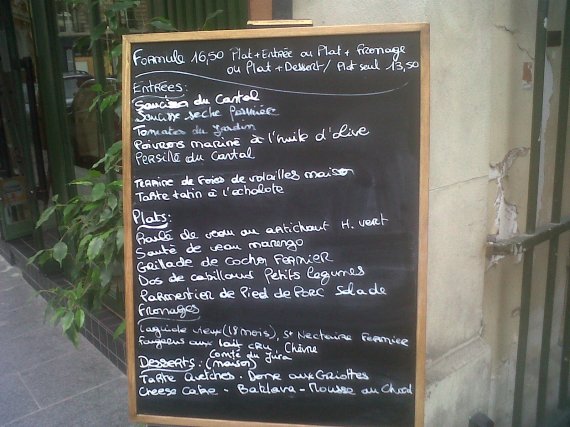 Formule 16,50 Plat + Entrée ou Plat + Fromage
ou Plat + Dessert / Plat seul 13,50
Entrées:
Saucisson du Cantal
Saucisse seche fermière
Tomates du Jardin
Poivrons mariné a l'huile d'olive
Persillé du Cantal
Terrine de Foies de volailles maison
Tarte tatin à l'échalote
Plats:
Paulé de veau au artichaut H. vert
Sauté de veau marengo
Grillade de cochon fermier
Dos de cabillaud Petits legumes
Parmentier de Pied de Porc Salade
Fromages
Laguiole vieux (18 mois), St Nectaire Fermier
Fougerous aux lait cru, Chèvre
Comté du Jura
Desserts: (maison)
Tarte Quetches - Dome aux Griottes
Cheese Cake - Baklava - Mousse au Choco